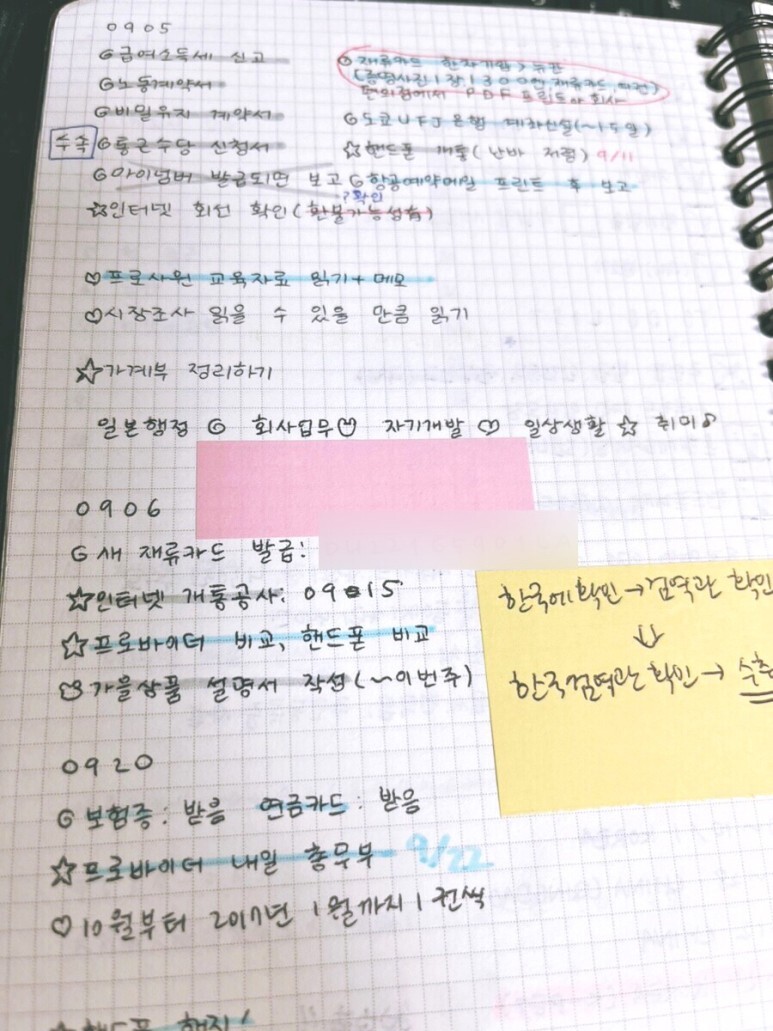 0905
급여소득세 신고
노동계약서
비밀유지 계약서
수속 통근수당 신청서
마이넘버 발급되면 보고
☆인터넷 회선 확인(환불가능성有)
?확인
재류카드 한자기입>
(증명사진 1장 1300엔, 재류카드, 여권)
편의점에서 PDF 프린트 회사
도쿄UFJ 은행 계좌신설(~15일)
☆핸드폰 개통(난바 저녁) 9/11
항공예약메일 프린트 후 보고
♡프로사원 교육자료 읽기+메모
♡시장조사 읽을 수 있을 만큼 읽기
☆가계부 정리하기
일본행정 회사업무 자기개발 ♡ 일상생활 ☆ 취미♪
0906
새 재류카드 발급:
☆인터넷 개통공사: 09 15
☆프로바이더 비교, 핸드폰 비교
가을상품 설명서 작성(~이번주)
한국에 확인→검역관 확인
⇓
한국검역관 확인→
0920
보험증: 받음 연금카드: 받음
☆프로바이더 내일 총무부 9/22
♡10월부터 2017년 1월까지 1권씩
☆핸드폰 해지!